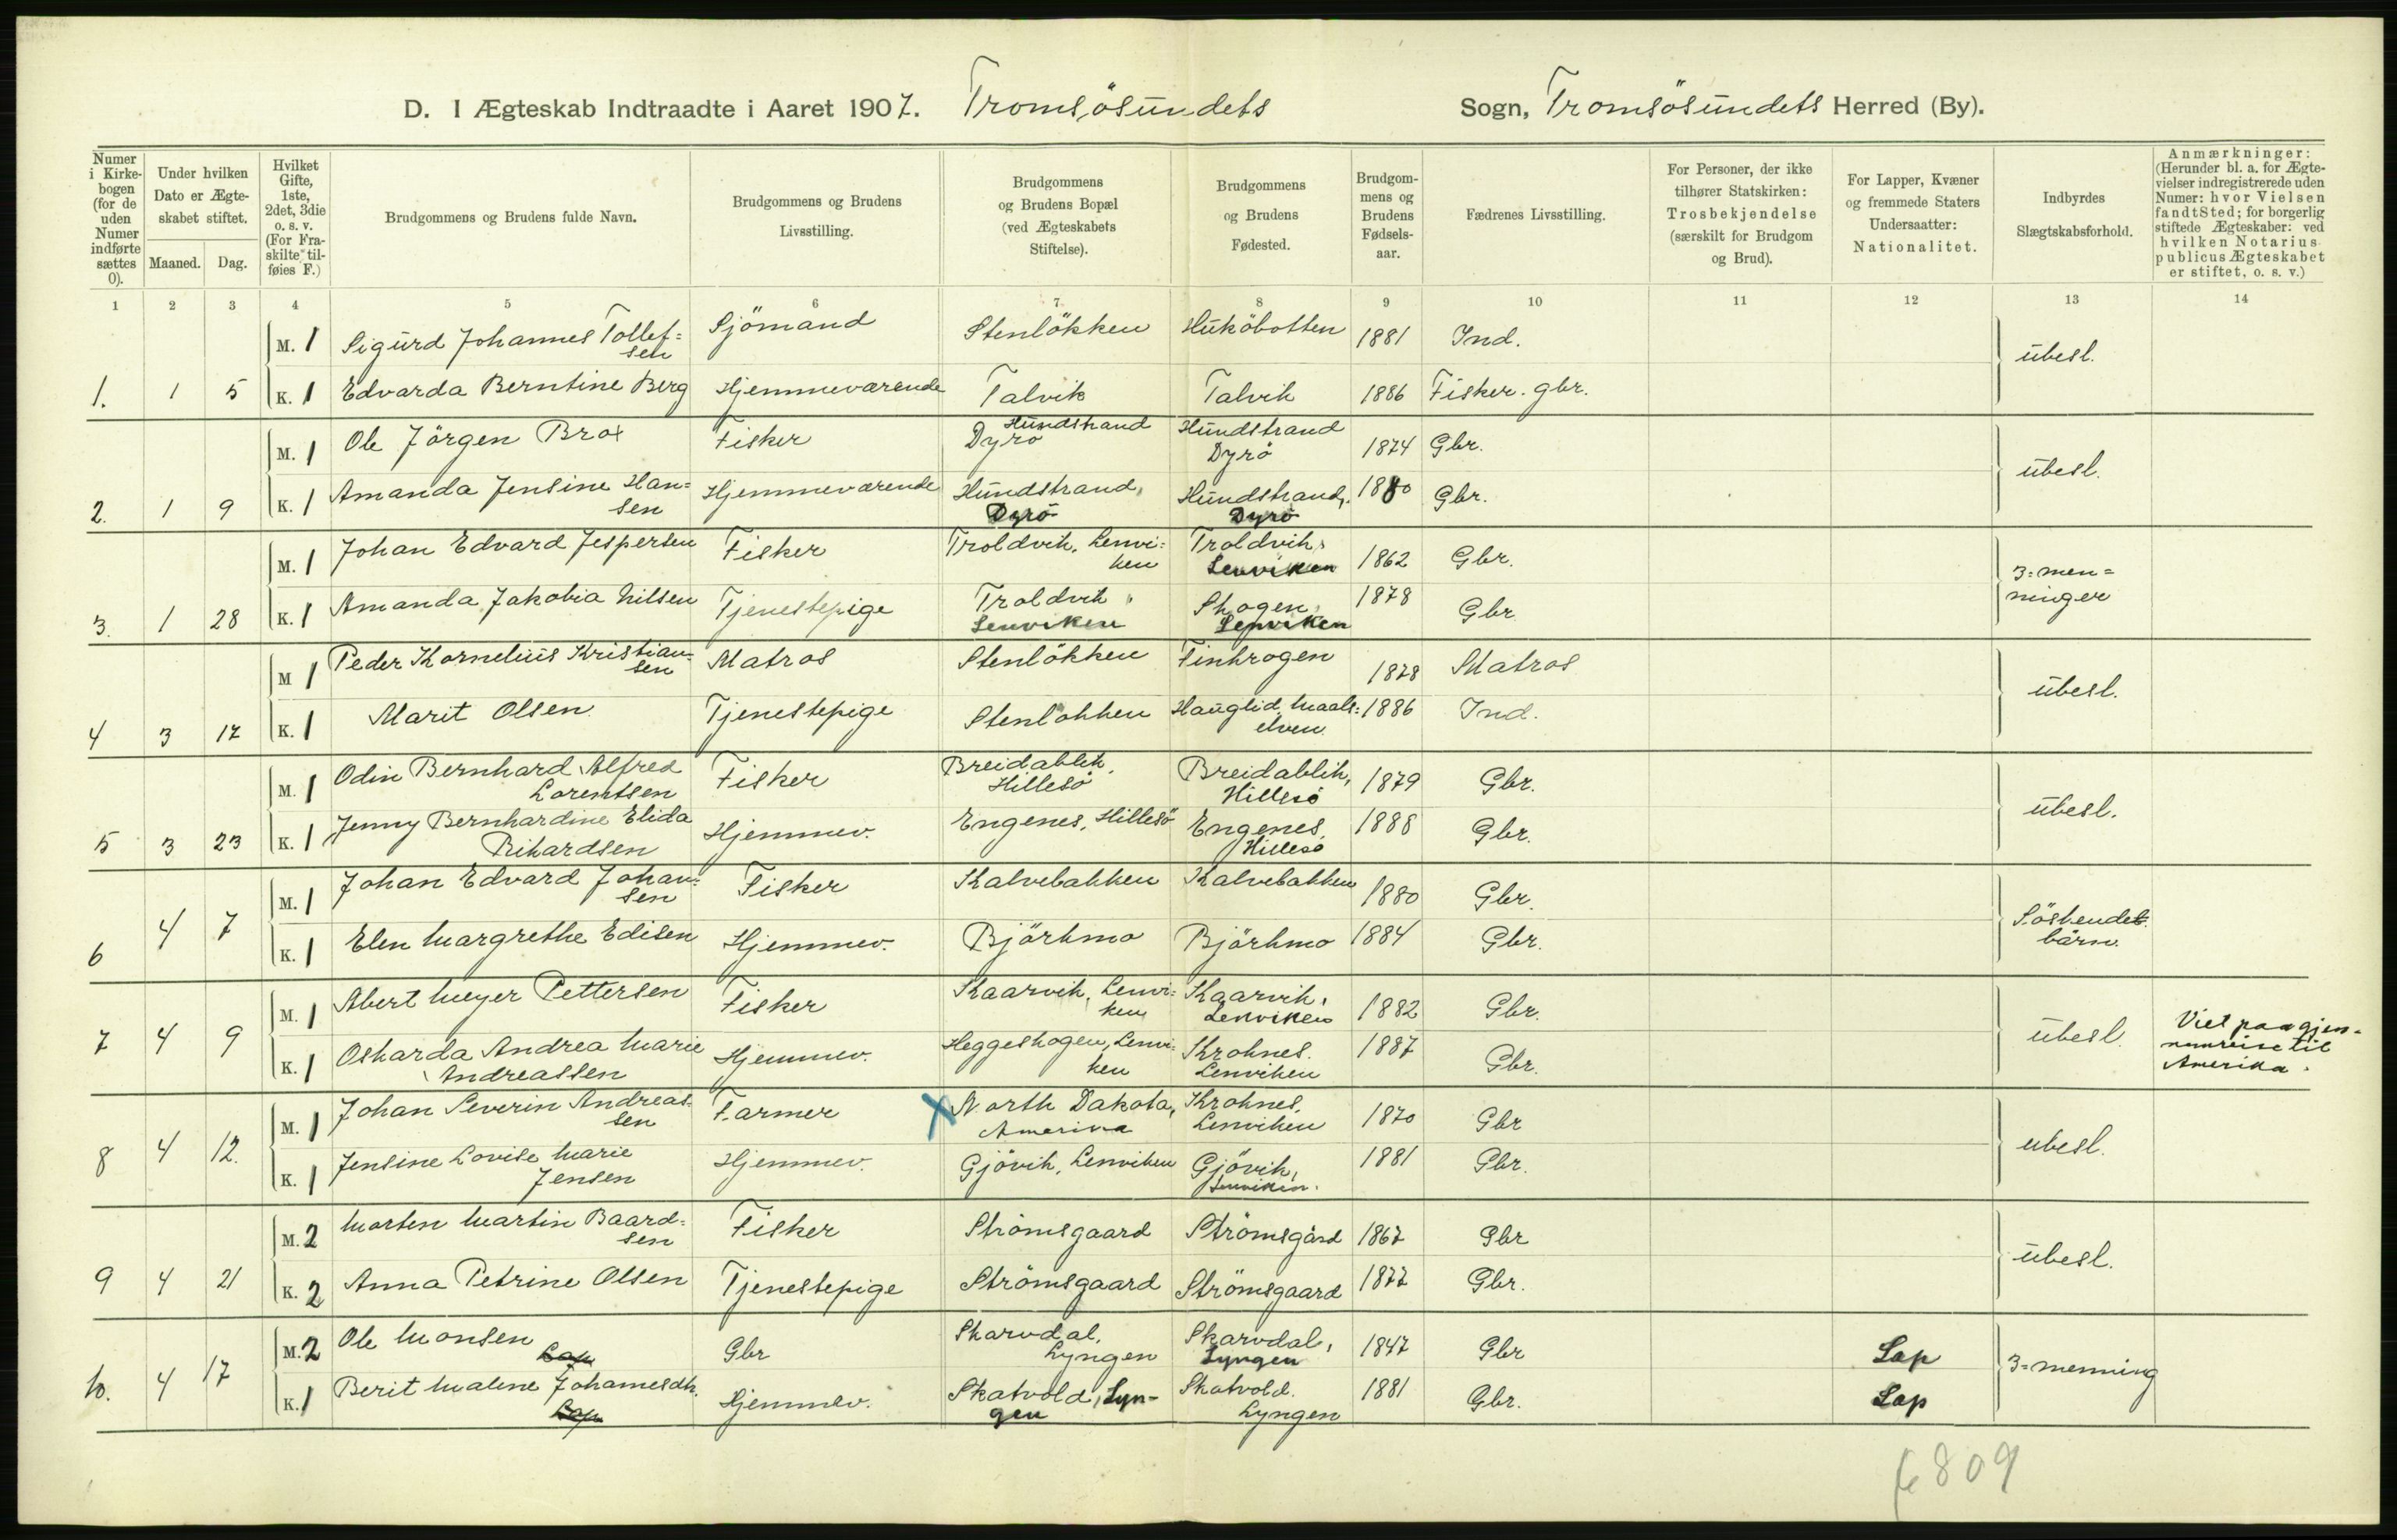 D. I Ægteskab Indtraadte i Aaret 1907. Tromsösundets Sogn, Tromsösundets Herred (By).
Numer i Kirkebogen (for de uden Numer indførte sættes 0).
Under hvilken Dato er Ægteskabet stiftet.
Maaned. Dag.
Hvilket Gifte, 1ste, 2det, 3die o. s. v. (For Fraskilte tilføies F.)
Brudgommens og Brudens fulde Navn.
Brudgommens og Brudens Livsstilling.
Brudgommens og Brudens Bopæl (ved Ægteskabets Stiftelse).
Brudgommens og Brudens Fødested.
Brudgommens og Brudens Fødselsaar.
Fædrenes Livsstilling.
For Personer, der ikke tilhører Statskirken: Trosbekjendelse (særskilt for Brudgom og Brud).
For Lapper, Kvæner og fremmede Staters Undersaatter: Nationalitet.
Indbyrdes Slægtskabsforhold.
Anmærkninger: (Herunder bl. a. for Ægtevielser indregistrerede uden Numer: hvor Vielsen fandt Sted; for borgerlig stiftede Ægteskaber: ved hvilken Notarius publicus Ægteskabet er stiftet, o. s. v.)
1 2 3 4 5 6 7 8 9 10 11 12 13 14
M. 1 Sigurd Johannes Tollefsen Sjömand Stenlökken Huköbotten 1881 Ind. ubesl.
1. 1 5 K. 1 Edvarda Berntine Berg Hjemmeværende Talvik Talvik 1886 Fisker. gbr.
M. 1 Ole Jörgen Brox Fisker Hundstrand Dyrö Hundstrand Dyrö 1874 Gbr. ubesl.
2. 1 9 K. 1 Amanda Jensine Hansen Hjemmeværende Hundstrand, Dyrö Hundstrand, Dyrö 1880 Gbr.
M. 1 Johan Edvard Jespersen Fisker Troldvik, Lenviken Troldvik, Lenviken 1862 Gbr. 3=menninger
3. 1 28 K. 1 Amanda Jakobia Nilsen Tjenestepige Troldvik, Lenviken Skogen, Lenviken 1878 Gbr
M 1 Peder Kornelius Kristiansen Matros Stenlökken Finkrogen 1878 Matros ubesl.
4 3 17 K. 1 Marit Olsen Tjenestepige Stenlökken Hauglid, Maalselven 1886 Ind.
M. 1 Odin Bernhard Alfred Lorentsen Fisker Breidablik, Hillesö Breidablik, Hillesö 1879 Gbr. ubesl.
5 3 23 K. 1 Jenny Bernhardine Elida Rikardsen Hjemmev. Engenes, Hillesö Engenes, Hillesö 1888 Gbr.
M. 1 Johan Edvard Johansen Fisker Kalvebakken Kalvebakken 1880 Gbr. Söskendebarn
6 4 7 K. 1 Elen Margrethe Edisen Hjemmev. Björkmo Björkmo 1884 Gbr.
M. 1 Abert Meyer Pettersen Fisker Kaarvik, Lenviken Kaarvik, Lenviken 1882 Gbr. ubesl. Viet paa gjennemreise til Amerika.
7 4 9 K. 1 Oskarda Andrea Marie Andreassen Hjemmev. Heggeskogen, Lenviken Kroknes. Lenviken 1887 Gbr.
M. 1 Johan Severin Andreassen Farmer X North Dakota, Amerika Kroknes, Lenviken 1870 Gbr ubesl.
8 4 12. K. 1 Jensine Lovise Marie Jensen Hjemmev. Gjövik, Lenviken Gjövik, Lenviken. 1881 Gbr.
M. 2 Morten Martin Baardsen Fisker Strömsgaard Strömsgård 1867 Gbr ubesl.
9 4 21 K. 2 Anna Petrine Olsen Tjenestepige Strömsgaard Strömsgaard 1877 Gbr.
M. 2 Ole Monsen Lap Gbr Skarvdal, Lyngen Skarvdal, Lyngen 1847 Gbr Lap 3=menning
10. 4 17 K. 1 Berit Malene Johannesdtr. Lap Hjemmev. Skatvold, Lyngen Skatvold. Lyngen 1881 Gbr. Lap
6809